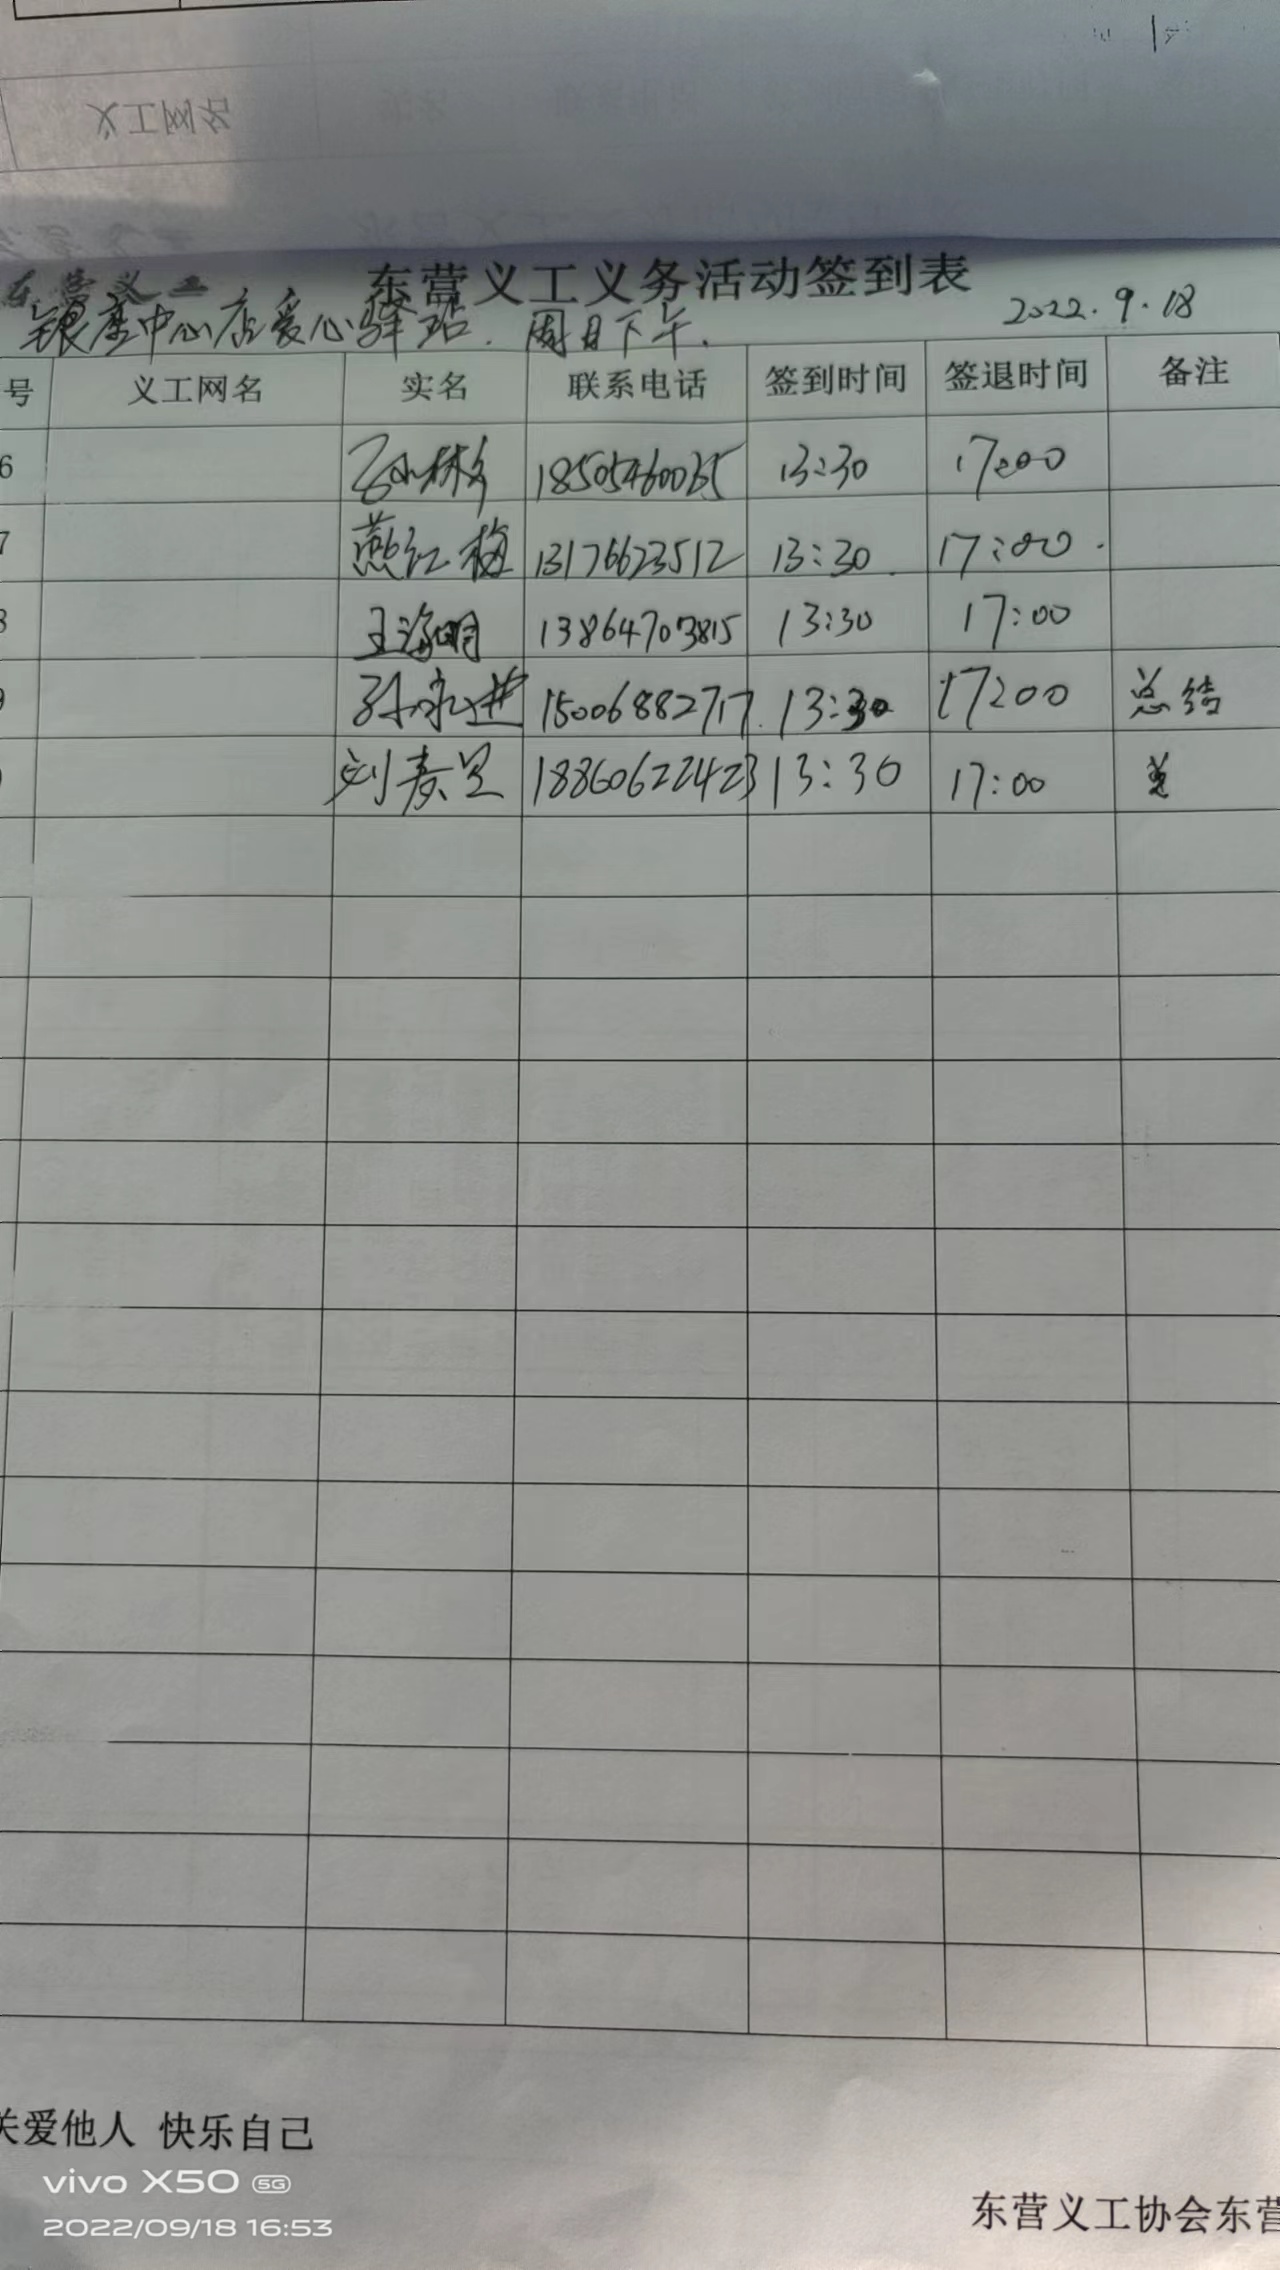 义工网名
东营义工义务活动签到表
东营义工
银座中心店爱心驿站. 周日下午.
2022.9.18
号 义工网名 实名 联系电话 签到时间 签退时间 备注
6 18505460065 13:30 17:00
7 燕红梅 13176623512 13:30 17:00
8 王海明 13864703815 13:30 17:00
9 孙永进 15006882717 13:30 17:00 总结
刘春昱 18860622423 13:30 17:00
关爱他人 快乐自己
vivo X50 5G
2022/09/18 16:53
东营义工协会东营